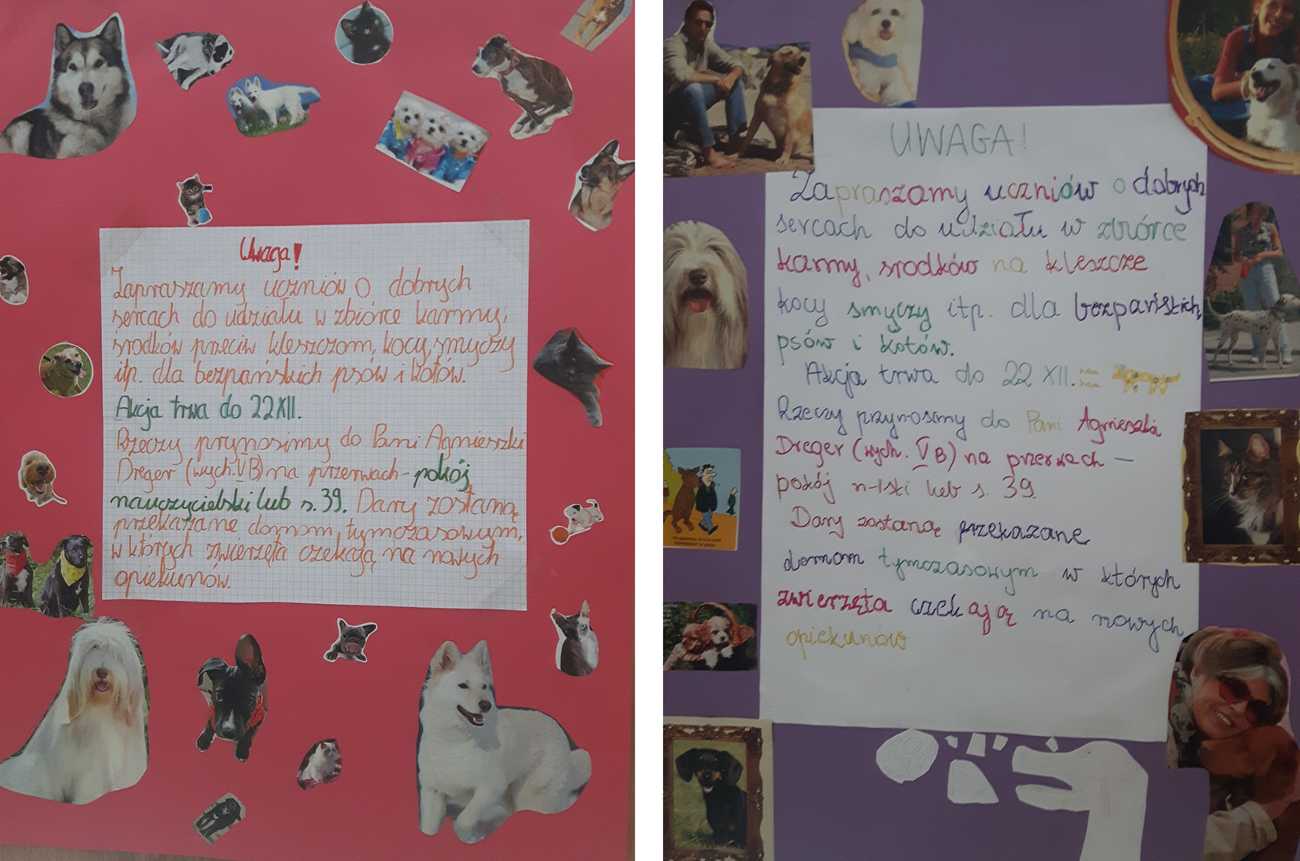 Uwaga!
Zapraszamy uczniów o dobrych
sercach do udziału w zbiórce karmy,
środków przeciw kleszczom, kocy, smyczy
itp. dla bezpańskich psów i kotów.
Akcja trwa do 22 XII.
Rzeczy przynosimy do Pani Agnieszki
Dreger (wych. V B) na przerwach - pokój
nauczycielski lub s. 39. Dary zostaną
przekazane domom tymczasowym,
w których zwierzęta czekają na nowych
opiekunów.
UWAGA!
Zapraszamy uczniów o dobrych
sercach do udziału w zbiórce
karmy, srodków na kleszcze
kocy smyczy itp. dla bezpańskich,
psów i kotów.
Akcja trwa do 22 XII.
Rzeczy przynosimy do Pani Agnieszka
Dreger (wych. V B) na przerwach –
pokój n-lski lub s. 39.
Dary zostaną przekazane
domom tymczasowym w których
zwierzęta czekają na nowych
opiekunów